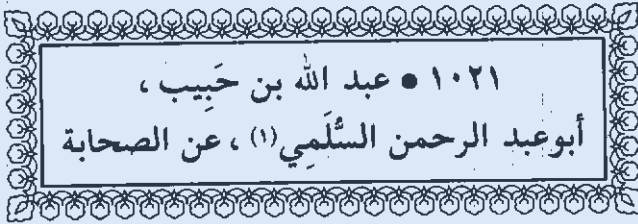 ١٠٢١ ● عبد الله بن حَبِيب ،
أبوعبد الرحمن السُّلَمِي(١) ، عن الصحابة